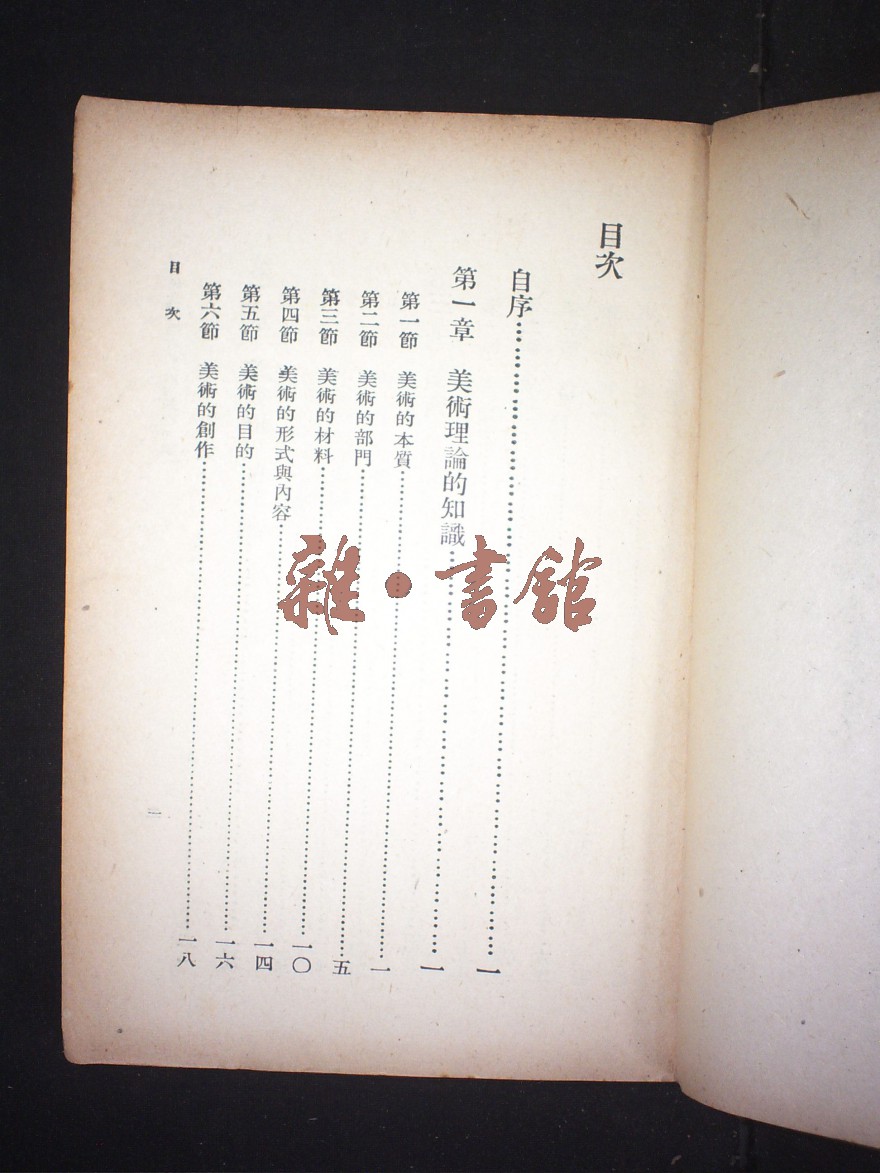 目次
自序……………………………………一
第一章 美術理論的知識……………………………………一
第一節 美術的本質……………………………………一
第二節 美術的部門……………………………………五
第三節 美術的材料……………………………………一〇
第四節 美術的形式與內容……………………………………一四
第五節 美術的目的……………………………………一六
第六節 美術的創作……………………………………一八
目 次
雜·書館